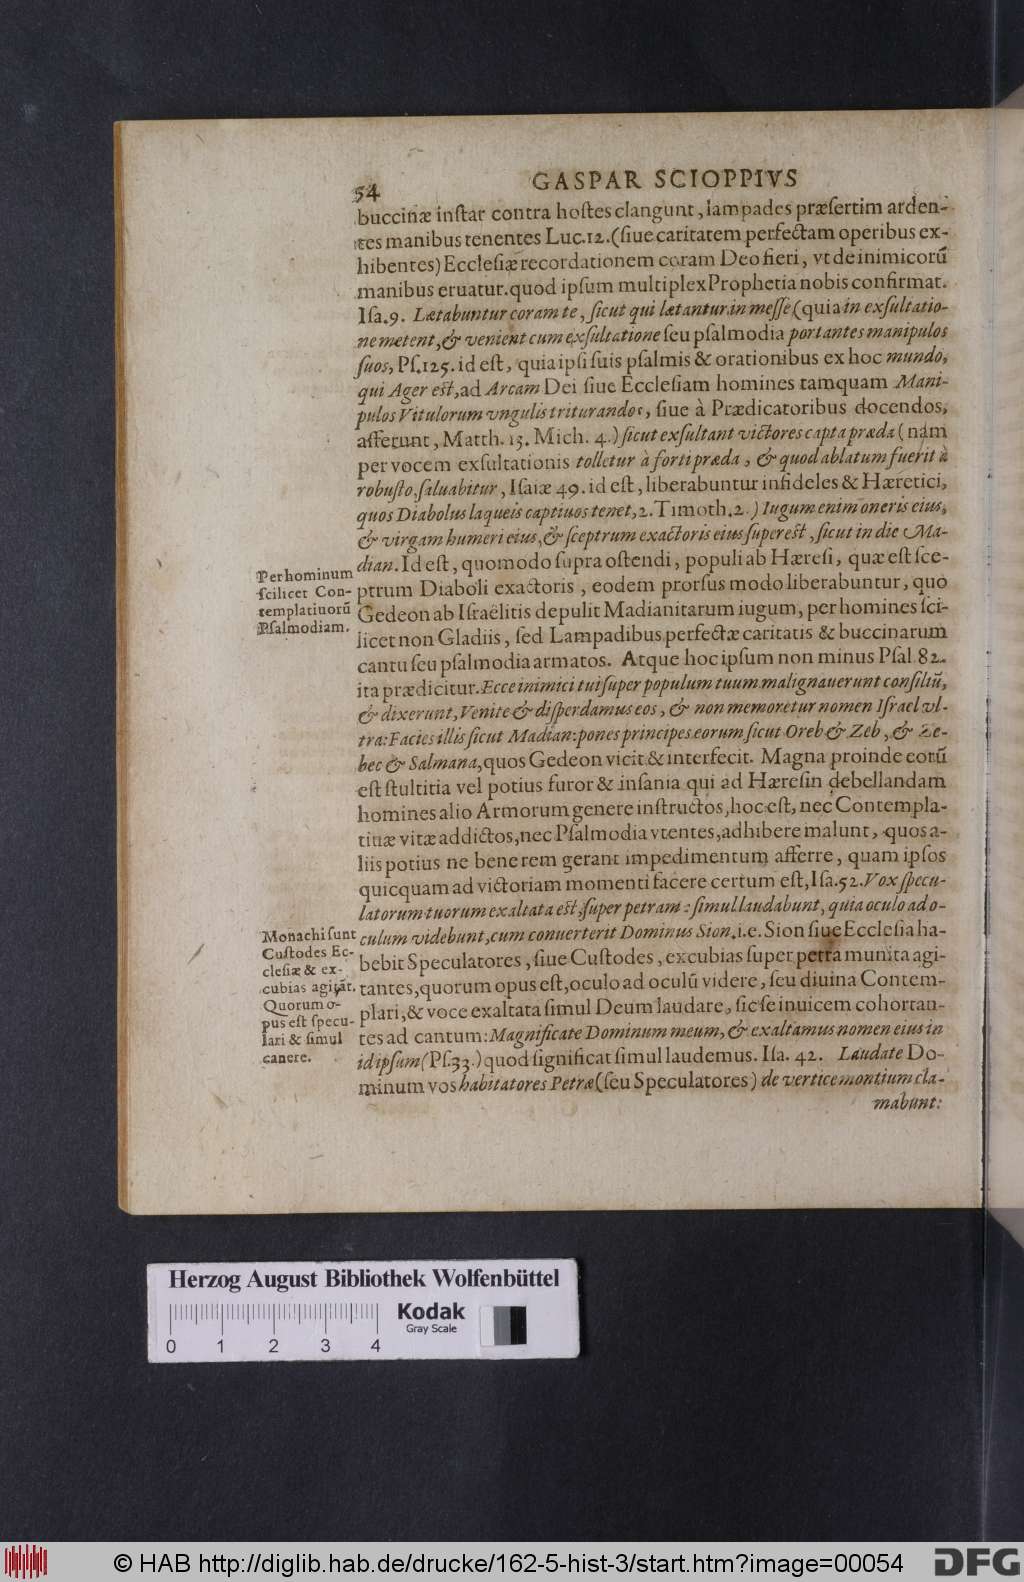 54
GASPAR SCIOPPIVS
buccinæ inſtar contra hoſtes clangunt, lampades præſertim arden-
tes manibus tenentes Luc.12.(ſiue caritatem perfectam operibus ex-
hibentes) Eccleſiæ recordationem coram Deo fieri, vt de inimicorũ
manibus eruatur. quod ipſum multiplex Prophetia nobis confirmat.
Iſa.9. Lætabuntur coram te, ſicut qui lætantur in meſſe (quia in exſultatio-
ne metent, & venient cum exſultatione ſeu pſalmodia portantes manipulos
ſuos, Pſ.125. id eſt, quia ipſi ſuis pſalmis & orationibus ex hoc mundo,
qui Ager eſt, ad Arcam Dei ſiue Eccleſiam homines tamquam Mani-
pulos Vitulorum vngulis triturandos, ſiue à Prædicatoribus docendos,
afferunt, Matth. 13. Mich. 4.) ſicut exſultant victores capta præda (nam
per vocem exſultationis tolletur à forti præda, & quod ablatum fuerit à
robuſto, ſaluabitur, Iſaiæ 49. id eſt, liberabuntur infideles & Hæretici,
quos Diabolus laqueis captiuos tenet, 2. Timoth. 2.) Iugum enim oneris eius,
& virgam humeri eius, & ſceptrum exactoris eius ſupereſt, ſicut in die Ma-
dian. Id eſt, quomodo ſupra oſtendi, populi ab Hæreſi, quæ eſt ſce-
ptrum Diaboli exactoris, eodem prorſus modo liberabuntur, quo
Gedeon ab Iſraëlitis depulit Madianitarum iugum, per homines ſci-
licet non Gladiis, ſed Lampadibus perfectæ caritatis & buccinarum
cantu ſeu pſalmodia armatos. Atque hoc ipſum non minus Pſal. 82.
ita prædicitur. Ecce inimici tui ſuper populum tuum malignauerunt conſiliũ,
& dixerunt, Venite & diſperdamus eos, & non memoretur nomen Iſrael vl-
tra: Facies illis ſicut Madian: pones principes eorum ſicut Oreb & Zeb, & Ze-
bec & Salmana, quos Gedeon vicit & interfecit. Magna proinde eorũ
eſt ſtultitia vel potius furor & inſania qui ad Hæreſin debellandam
homines alio Armorum genere inſtructos, hoc eſt, nec Contempla-
tiuæ vitæ addictos, nec Pſalmodia vtentes, adhibere malunt, quos a-
liis potius ne bene rem gerant impedimentum afferre, quam ipſos
quicquam ad victoriam momenti facere certum eſt, Iſa.52. Vox ſpecu-
latorum tuorum exaltata eſt, ſuper petram: ſimul laudabunt, quia oculo ad o-
culum videbunt, cum conuerterit Dominus Sion. i.e. Sion ſiue Eccleſia ha-
bebit Speculatores, ſiue Cuſtodes, excubias ſuper petra munita agi-
tantes, quorum opus eſt, oculo ad oculũ videre, ſeu diuina Contem-
plari, & voce exaltata ſimul Deum laudare, ſic ſe inuicem cohortan-
tes ad cantum: Magnificate Dominum meum, & exaltamus nomen eius in
idipſum (Pſ.33.) quod ſignificat ſimul laudemus. Iſa. 42. Laudate Do-
minum vos habitatores Petræ (ſeu Speculatores) de vertice montium cla-
mabunt:
Per hominum
ſcilicet Con-
templatiuorũ
Pſalmodiam.
Monachi ſunt
Cuſtodes Ec-
cleſiæ & ex-
cubias agitãt.
Quorum o-
pus eſt ſpecu-
lari & ſimul
canere.
Herzog August Bibliothek Wolfenbüttel
Kodak
Gray Scale
0 1 2 3 4
© HAB http://diglib.hab.de/drucke/162-5-hist-3/start.htm?image=00054
DFG